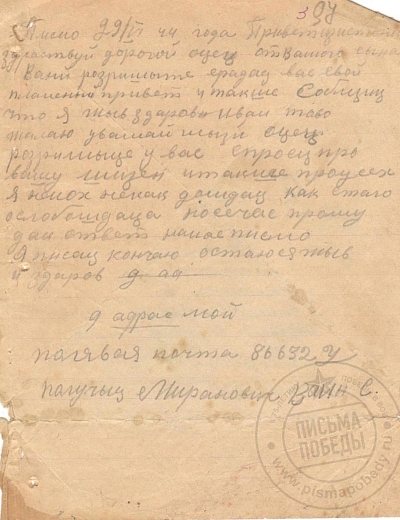 397
Писмо 29/VI 44 года Привет
здраствуй дорогой оцец от Вашого сына
Вани розришыте ередац вас свой
пламений привет у также Собщиц
что я жыв здаровы и вам таво
жалаю уважаймый мой оцец
розришыце у вас спросиц про
вашу жизен и также про усех
я немох некак дождац как стаго
ослобождаца но сечас прошу
дай ответ на мае писмо
я писац кончаю остаюся жыв
и здаров
адрас мой
палявая почта 86632 У
палучыц Миранович С.
ПИСЬМА ПОБЕДЫ
www.pismapobedy.ru